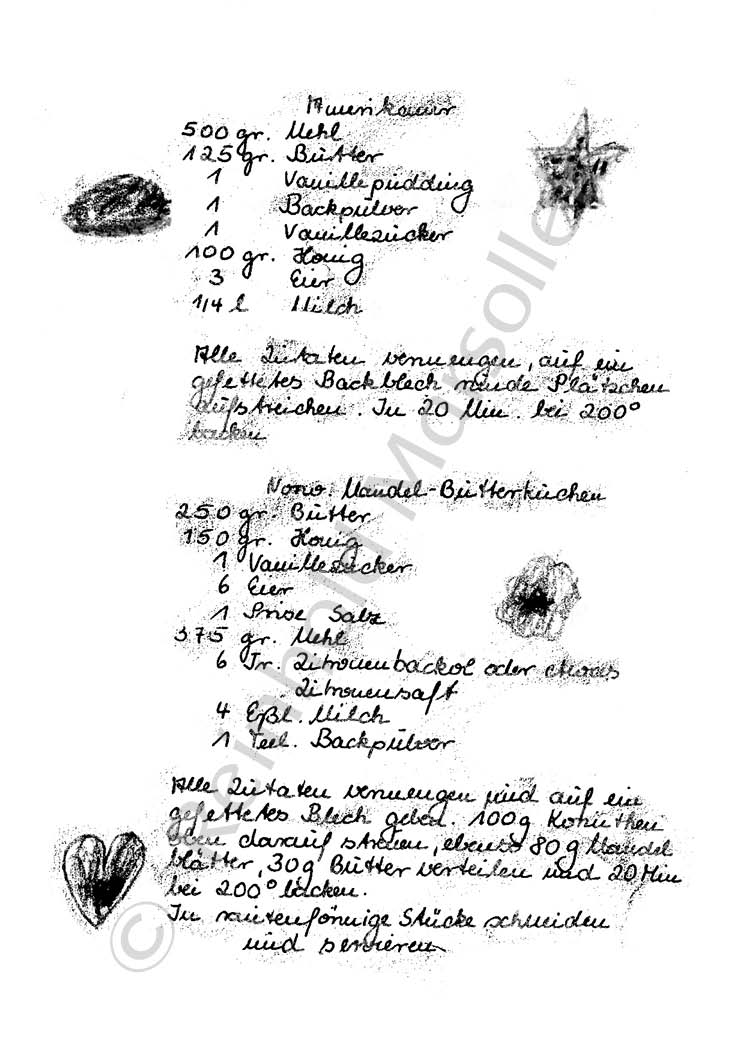 Amerikaner
500 gr. Mehl
125 gr. Butter
1 Vanillepudding
1 Backpulver
1 Vanillezucker
100 gr. Honig
3 Eier
1/4 l Milch
Alle Zutaten vermengen, auf ein
gefettetes Backblech runde Plätzchen
aufstreichen. In 20 Min. bei 200°
backen
Norw. Mandel-Butterkuchen
250 gr. Butter
150 gr. Honig
1 Vanillezucker
6 Eier
1 Prise Salz
375 gr. Mehl
6 Tr. Zitronenbacköl oder etwas
Zitronensaft
4 Eßl. Milch
1 Teel. Backpulver
Alle Zutaten vermengen und auf ein
gefettetes Blech geben. 100g
oben darauf streuen, ebenso 80g Mandel
blätter, 30g Butter verteilen und 20 Min
bei 200° backen.
In rautenförmige Stücke schneiden
und servieren
© Reinhold Marsolle